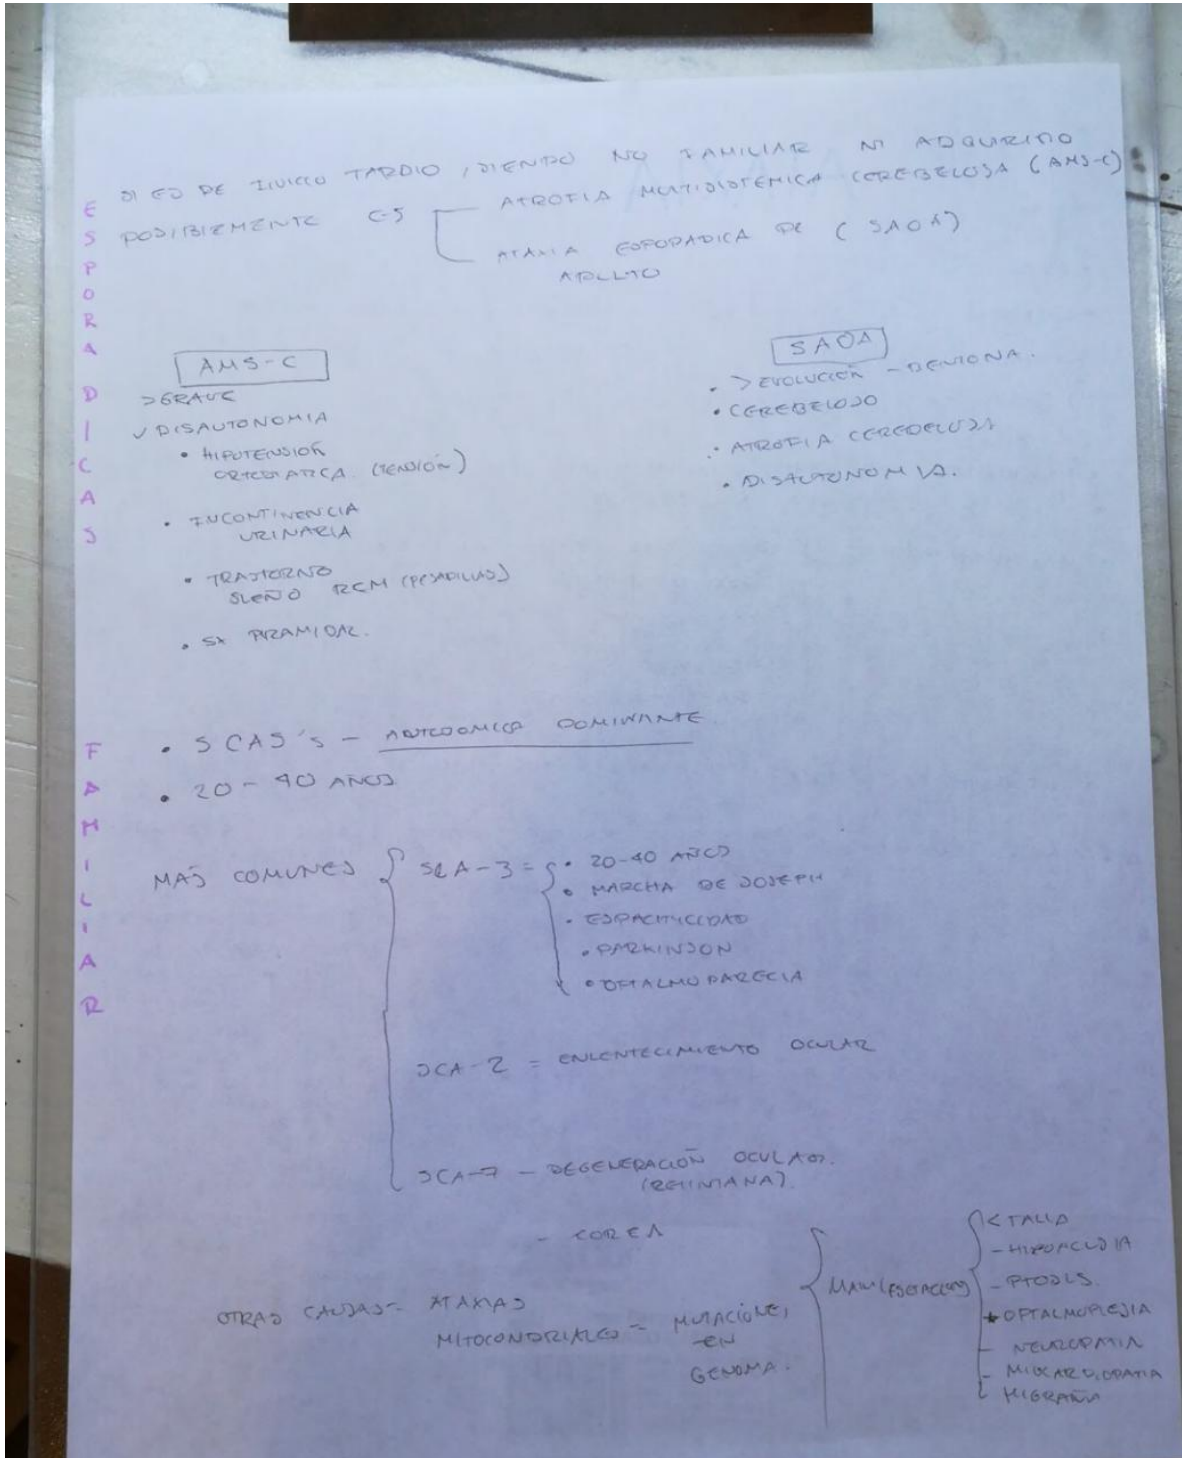 ESPORADICAS
SI ES DE INICIO TARDIO, SIENDO NO FAMILIAR NI ADQUIRIDO
POSIBLEMENTE ES
ATROFIA MULTISISTEMICA CEREBELOSA (AMS-C)
ATAXIA ESPORADICA DE (SAOA)
ADULTO
AMS-C
>GRAVE
✓ DISAUTONOMIA
• HIPOTENSION
ORTOSTATICA (TENSIÓN)
• INCONTINENCIA
URINARIA
• TRASTORNO
SUEÑO REM (PESADILLAS)
• SX PIRAMIDAL.
SAOA
• > EVOLUCIÓN -
• CEREBELOSO
• ATROFIA CEREBELOSA
• DISAUTONOMIA.
FAMILIAR
• SCAS's - AUTOSOMICA DOMINANTE
• 20-40 AÑOS
MAS COMUNES
SCA-3 = • 20-40 AÑOS
• MARCHA DE JOSEPH
• ESPACITICIDAD
• PARKINSON
• OFTALMOPARECIA
SCA-2 = ENLENTECIMIENTO OCULAR
SCA-7 - DEGENERACIÓN OCULAR.
(RETINIANA).
- COREA
OTRAS CAUSAS- ATAXIAS
MITOCONDRIALES = MUTACIONES
EN
GENOMA.
MANIFESTACIONES
< TALLA
- HIPOACUSIA
- PTOSIS.
* OPTALMOPLEJIA
- NEUROPATIA
- MIOCARDIOPATIA
MIGRAÑA